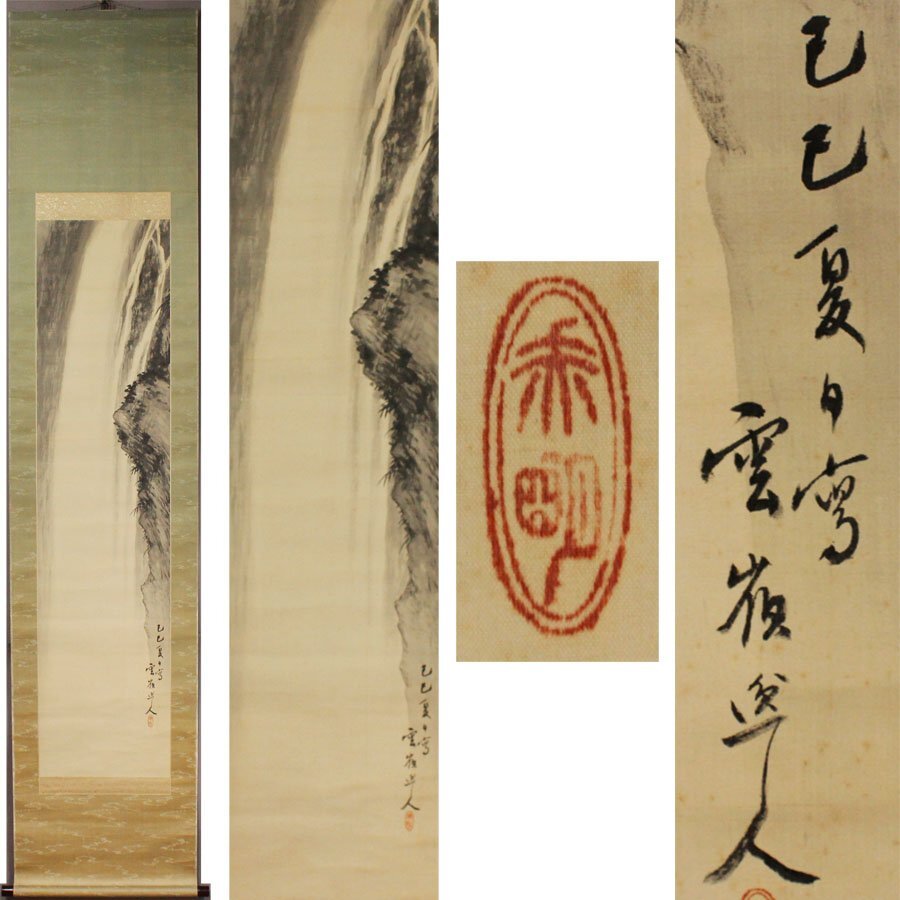 己巳夏日寫
雲嶺人
己巳夏日寫
雲嶺人
明
己巳夏日寫
雲嶺人